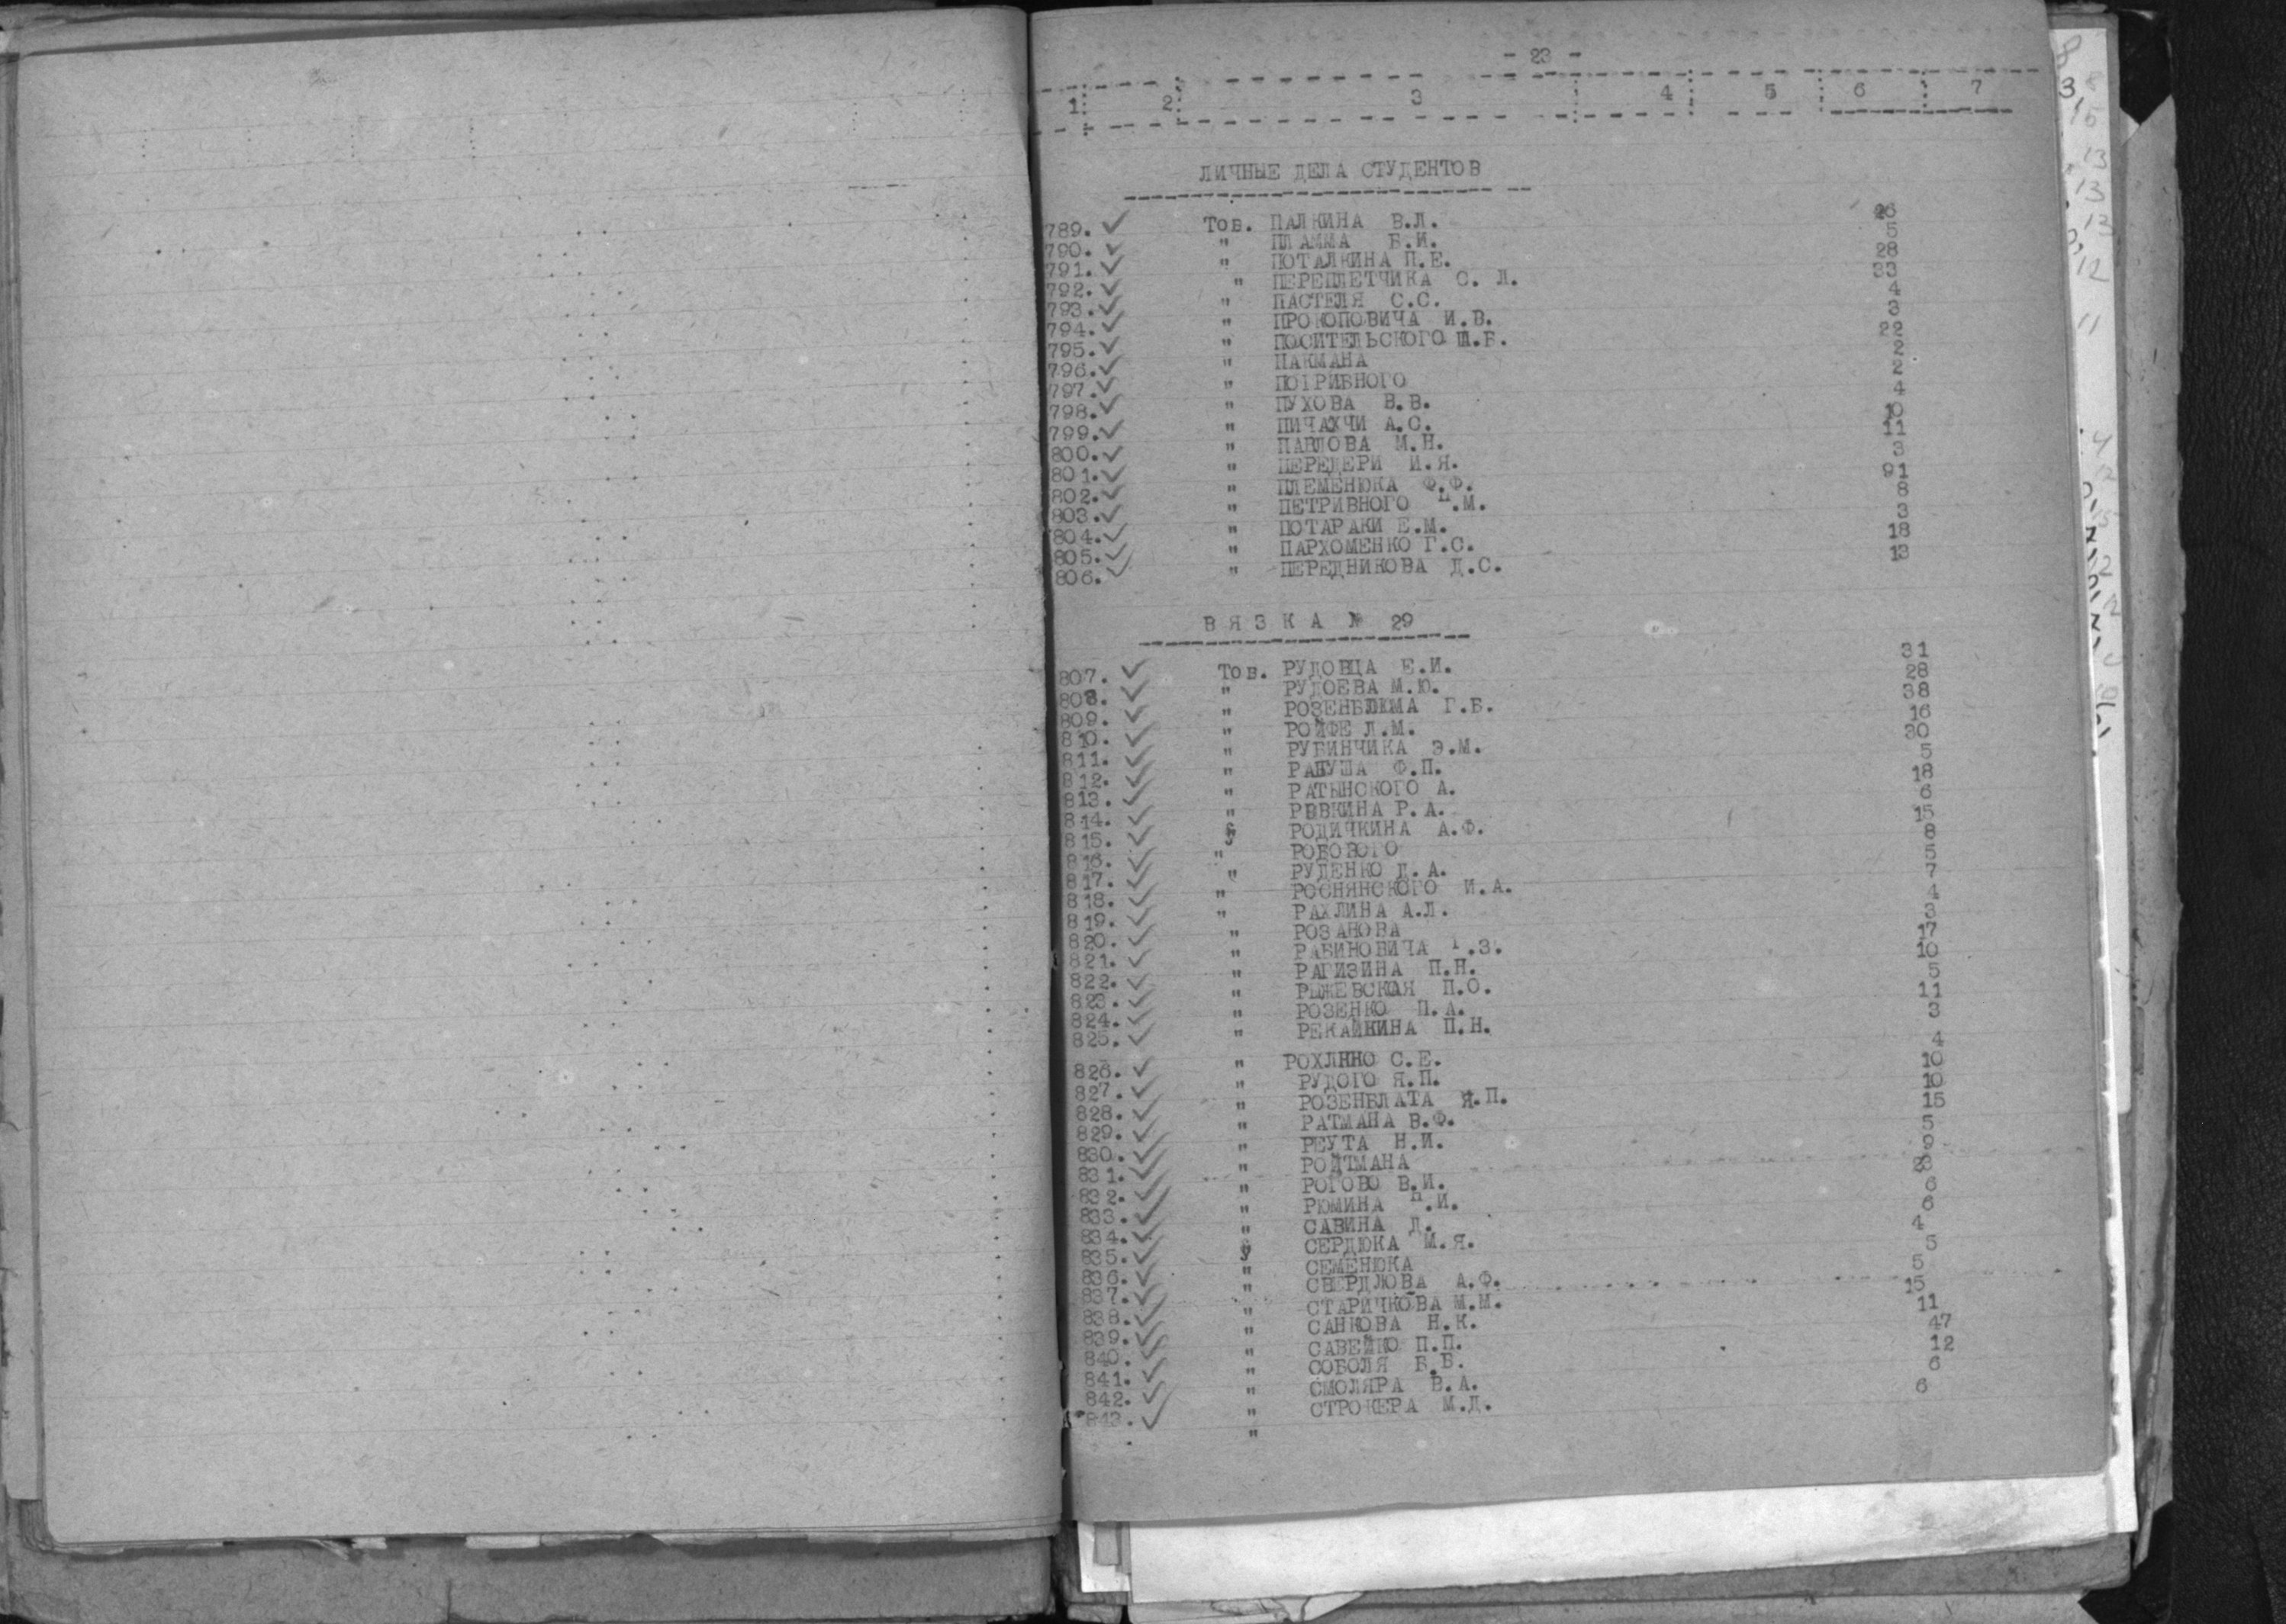 - 23 -
1 2 3 4 5 6 7
ЛИЧНЫЕ ДЕЛА СТУДЕНТОВ
789. Тов. ПАЛКИНА В.Л. 26
790. " ПЛАММА Б.И. 5
791. " ПОТАЛКИНА П.Е. 28
792. " ПЕРЕПЛЕТЧИКА С. Л. 33
793. " ПАСТЕЛЯ С.С. 4
794. " ПРОКОПОВИЧА И.В. 3
795. " ПОСИТЕЛЬСКОГО Ш.Б. 22
796. " ПАКМАНА 2
797. " ПОТРИВНОГО 2
798. " ПУХОВА В.В. 4
799. " ПИЧАХЧИ А.С. 10
800. " ПАВЛОВА М.Н. 11
801. " ПЕРЕДЕРИ И.Я. 3
802. " ПЛЕМЕНЮКА Ф.Ф. 91
803. " ПЕТРИВНОГО П.М. 8
804. " ПОТАРАКИ Е.М. 3
805. " ПАРХОМЕНКО Г.С. 18
806. " ПЕРЕДНИКОВА Д.С. 13
ВЯЗКА № 29
807. Тов. РУДОВЦА Е.И. 31
808. " РУДОЕВА М.Ю. 28
809. " РОЗЕНБЛЮМА Г.Б. 38
810. " РОЙФЕ Л.М. 16
811. " РУБИНЧИКА Э.М. 30
812. " РАПУША Ф.П. 5
813. " РАТЫНСКОГО А. 18
814. " РЫВКИНА Р.А. 6
815. РОДИЧКИНА А.Ф. 15
816. " РОБОВОГО 8
817. " РУДЕНКО Д.А. 5
818. " РОСНЯНСКОГО И.А. 7
819. " РАХЛИНА А.Л. 4
820. " РОЗАНОВА 3
821. " РАБИНОВИЧА Г.З. 17
822. " РАГИЗИНА П.Н. 10
823. " РЫЖЕВСКАЯ П.О. 5
824. " РОЗЕНКО П.А. 11
825. " РЕКАЙКИНА П.Н. 3
826. " РОХЛИНО С.Е. 4
827. " РУДОГО Я.П. 10
828. " РОЗЕНБЛАТА Я.П. 10
829. " РАТМАНА В.Ф. 15
830. " РЕУТА Н.И. 5
831. " РОЙТМАНА 9
832. " РОГОВО В.И. 23
833. " РЮМИНА П.И. 6
834. " САВИНА Д. 6
835. СЕРДЮКА М.Я. 4
836. " СЕМЕНЮКА 5
837. " СВЕРДЛОВА А.Ф. 5
838. " СТАРИЧКОВА М.М. 15
839. " САНКОВА Н.К. 11
840. " САВЕЙКО П.П. 47
841. " СОБОЛЯ Б.Б. 12
842. " СМОЛЯРА В.А. 6
843. " СТРОКЕРА М.Д. 6
"